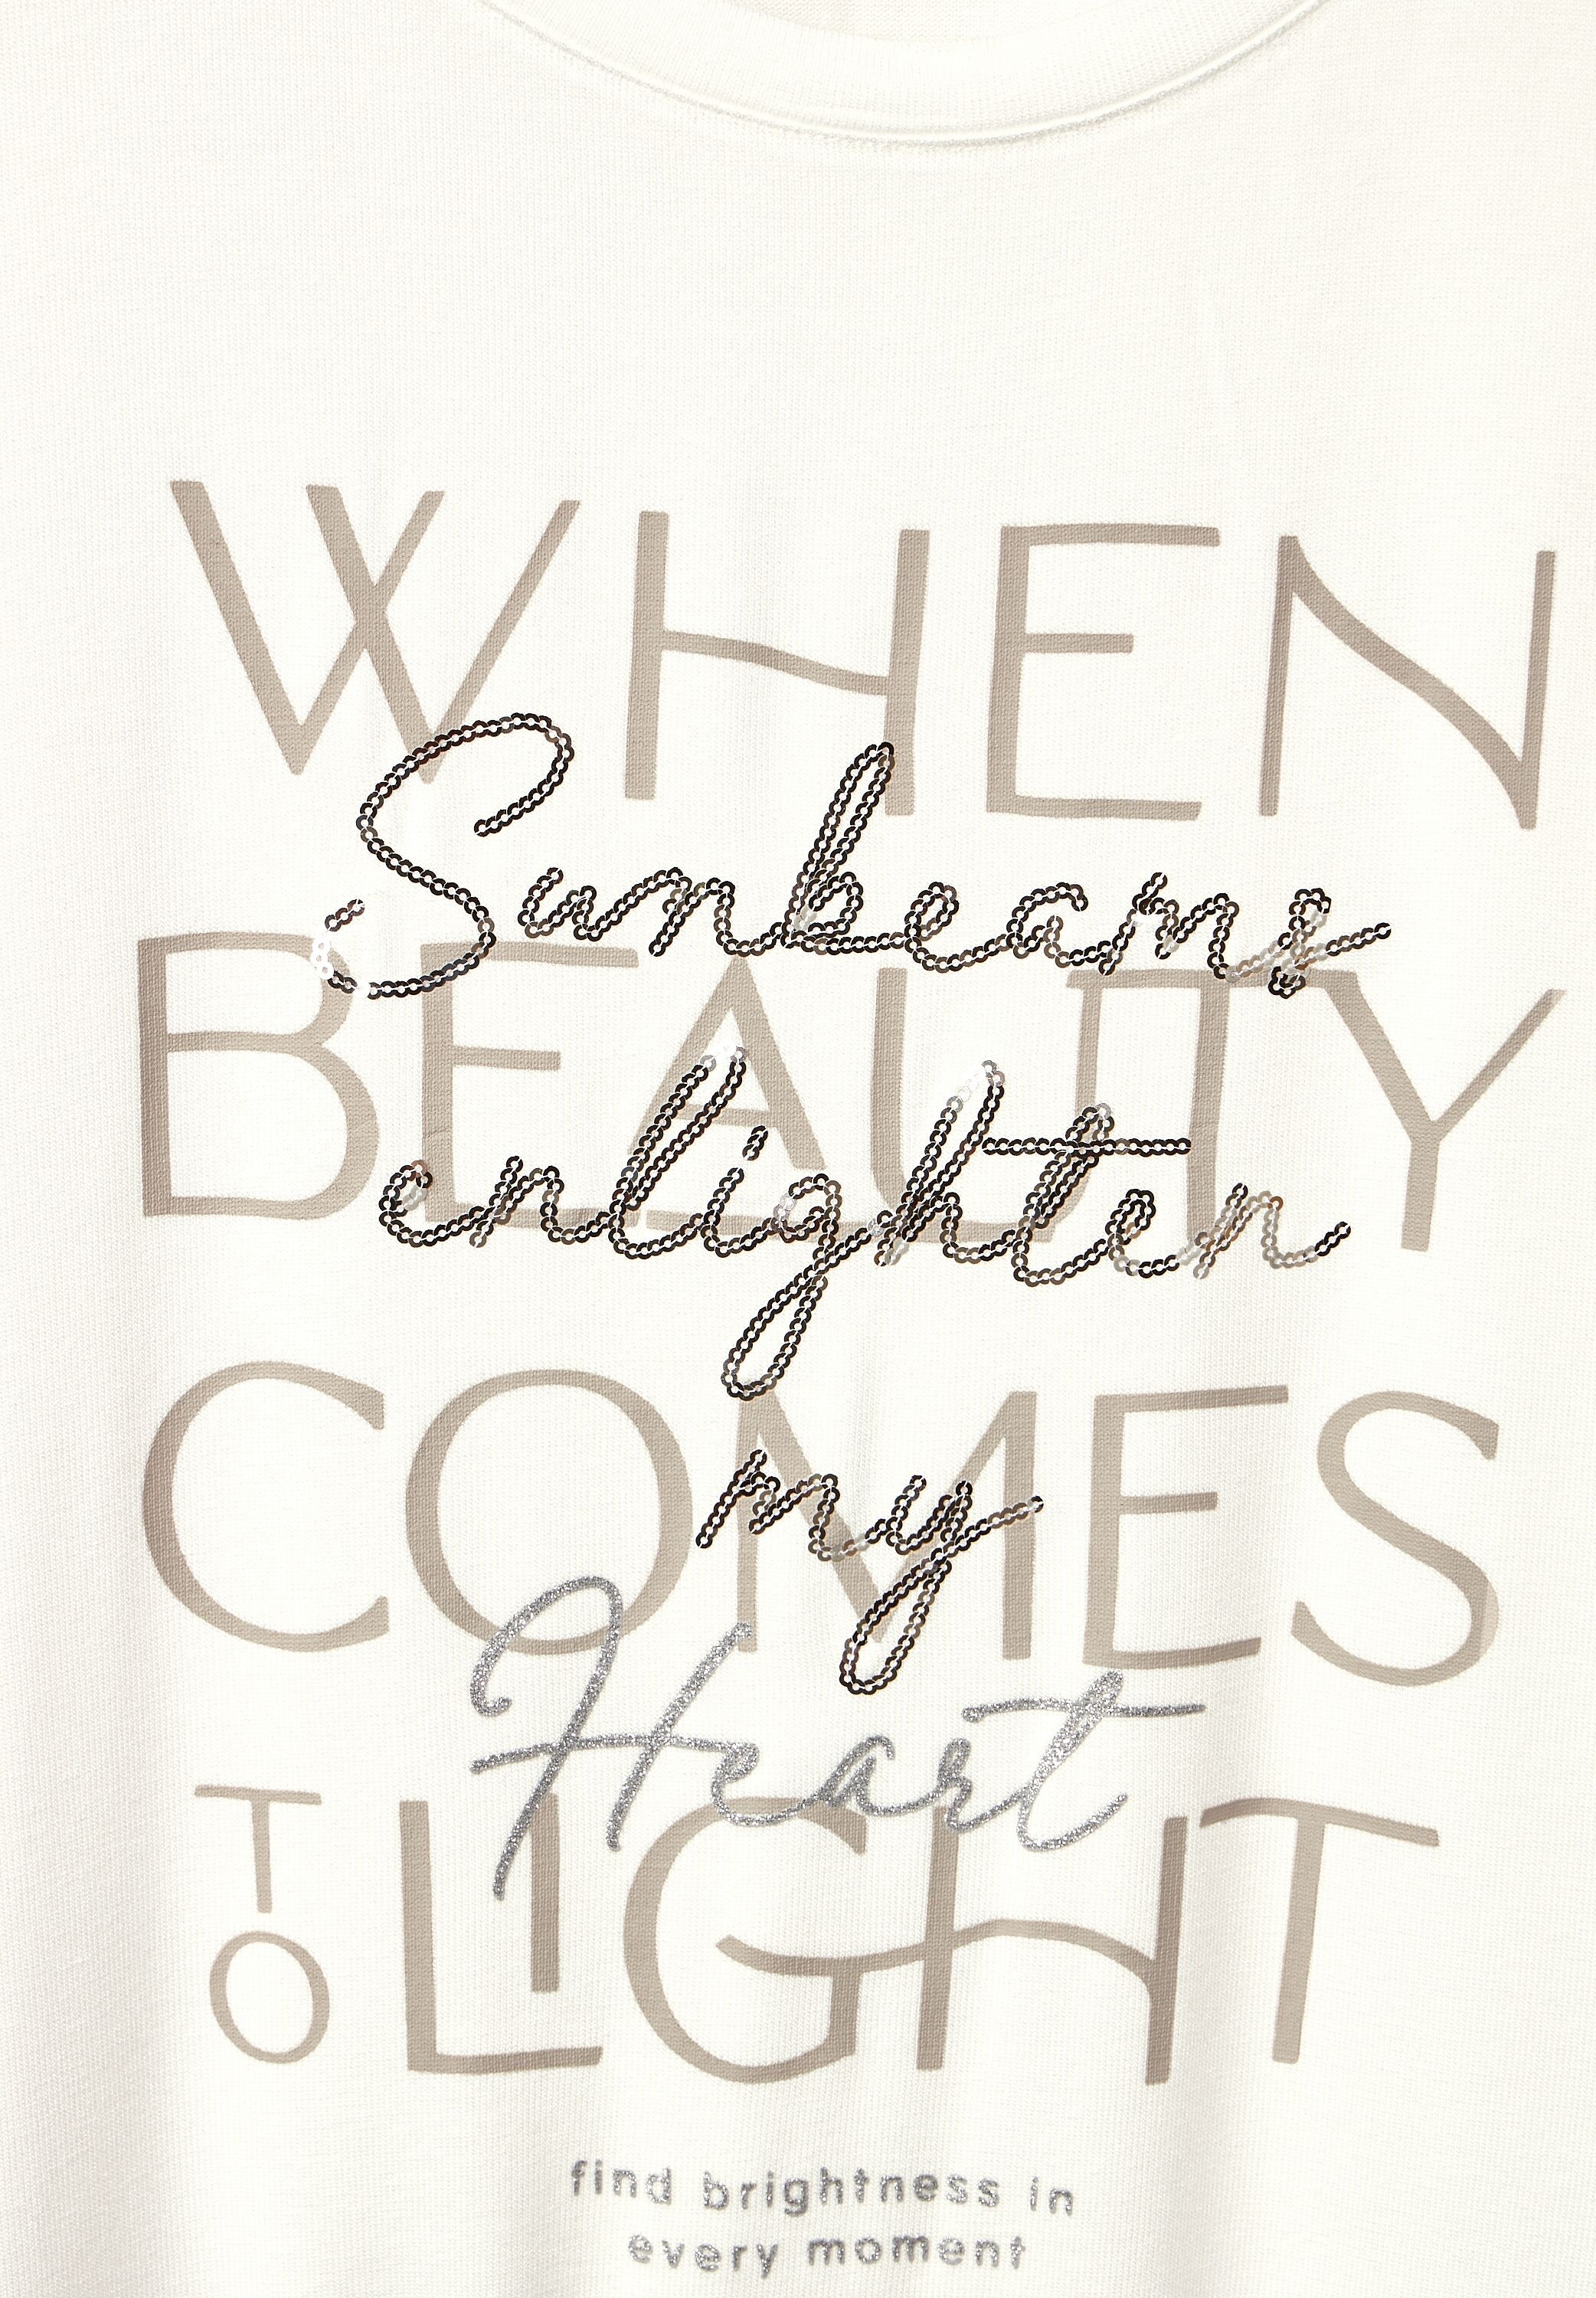 WHEN
Sunbeams
BEAUTY
enlighten
COMES
my
Heart
TO LIGHT
find brightness in
every moment